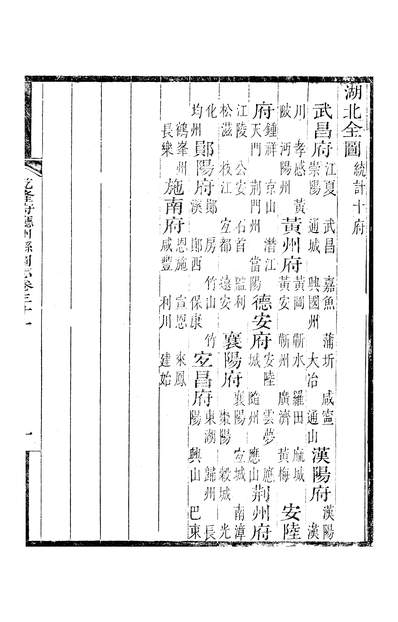 湖北全圖 統計十府
武昌府 江夏 武昌 嘉魚 蒲圻 咸寧 崇陽 通城 興國州 大冶 通山 漢陽府 漢陽 漢
川 孝感 黃陂 沔陽州 黃州府 黃岡 蘄水 羅田 麻城 黃安 蘄州 廣濟 黃梅 安陸
府 鍾祥 京山 潛江 天門 荊門州 當陽 德安府 安陸 雲夢 應城 隨州 應山 荊州府
江陵 公安 石首 監利 松滋 枝江 宜都 遠安 襄陽府 襄陽 宜城 南漳 棗陽 穀城 光
化 均州 鄖陽府 鄖 房 竹山 竹溪 鄖西 保康 宐昌府 東湖 歸州 長陽 興山 巴東
鶴峯州 長樂 施南府 恩施 宣恩 來鳳 咸豐 利川 建始
乾隆府廳州縣圖志卷三十一
一